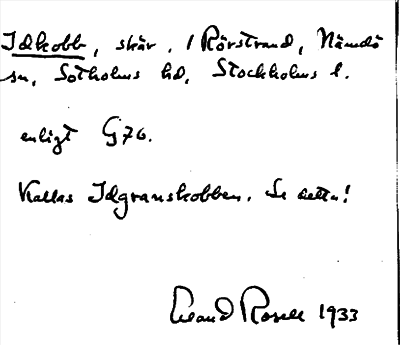 Idkobb, skär, / Rörstrand, Nämdö
sn, Sotholms hd, Stockholms l.
enligt G76.
Kallas Idgranskobben. Se detta!
Erland Rosell 1933